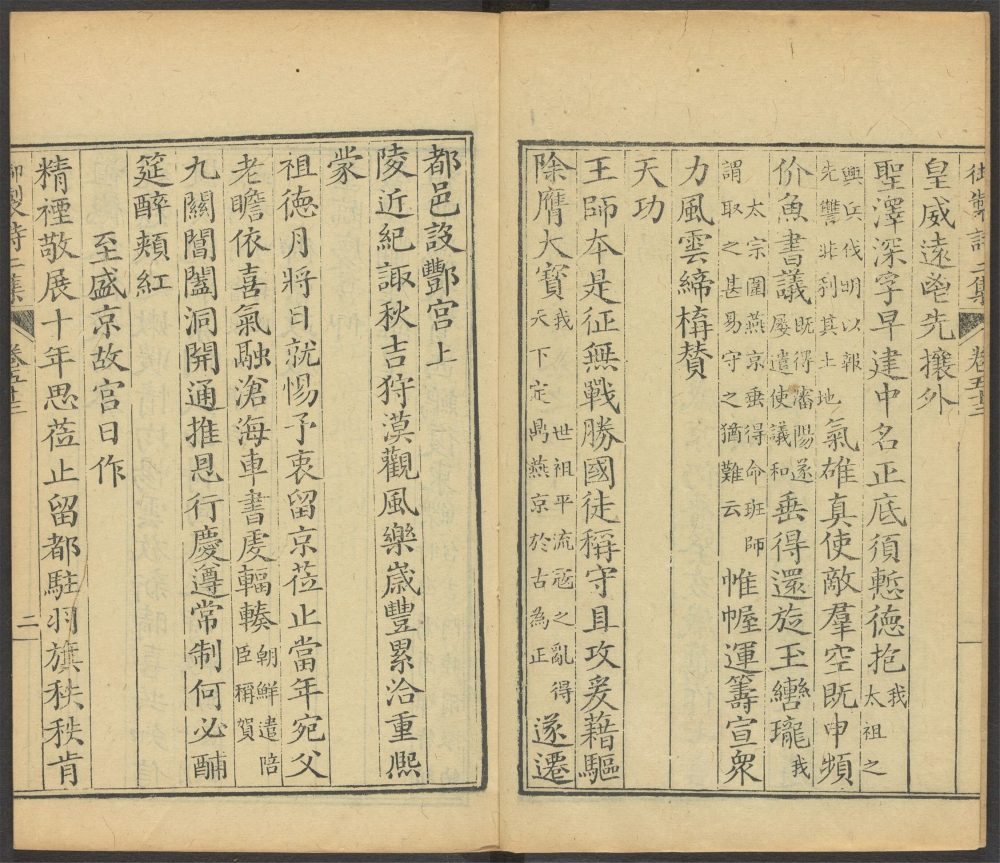 御製詩二集 卷五十三
皇威遠鬯先攘外
聖澤深孚早建中名正底須慙德抱我太祖之
興兵伐明以報先讐非利其土地氣雄真使敵羣空既申頻
价魚書議既得瀋陽遂屢遣使議和垂得還旋玉轡瓏我
太宗圍燕京垂得命班師謂取之甚易守之猶難云惟幄運籌宣衆
力風雲締構贊
天功
王師本是征無戰勝國徒稱守且攻爰藉驅
除膺大寶我世祖平流寇之亂得天下定鼎燕京於古為正遂遷
都邑設酆宮上
陵近紀諏秋吉狩漠觀風樂歲豐累洽重熙
蒙
祖德月將日就惕予衷留京莅止當年宛父
老瞻依喜氣融滄海車書處輻輳朝鮮遣陪臣稱賀
九關閶闔洞開通推恩行慶遵常制何必酺
筵醉頰紅
至盛京故宮日作
精禋敬展十年思莅止留都駐羽旗秩秩肯
御製詩二集 卷五十三 二